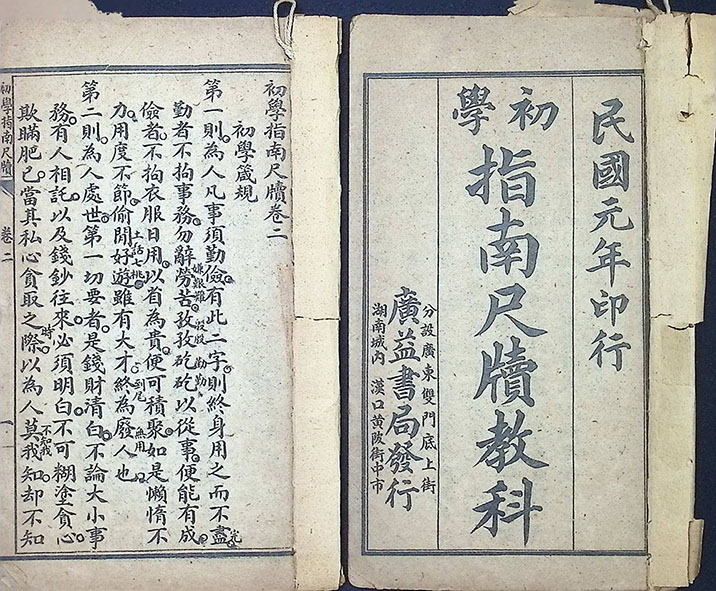 民國元年印行
初學
指南尺牘教科
分設廣東雙門底上街
廣益書局發行
湖南城內 漢口黃陂街中市
初學指南尺牘卷二
初學箴規
第一則。為人凡事須勤儉。有此二字。則終身用之而不盡。
完
勤者。不拘事務。勿辭勞苦。孜孜矻矻以從事。便能有成。
嫌艱難
勤勤
儉者。不拘衣服日用。以省為貴。便可積聚。如是懶惰不
力。用度不節。偷閒好遊。雖有大才。終為廢人也。
土話
到尾
無用
第二則。為人處世。第一切要者。是錢財清白。不論大小事
務。有人相託。以及錢鈔往來。必須明白。不可糊塗貪心。
欺瞞肥己。當其私心貪取之際。以為人莫我知。却不知
時
不知我
初學指南尺牘 卷二 一